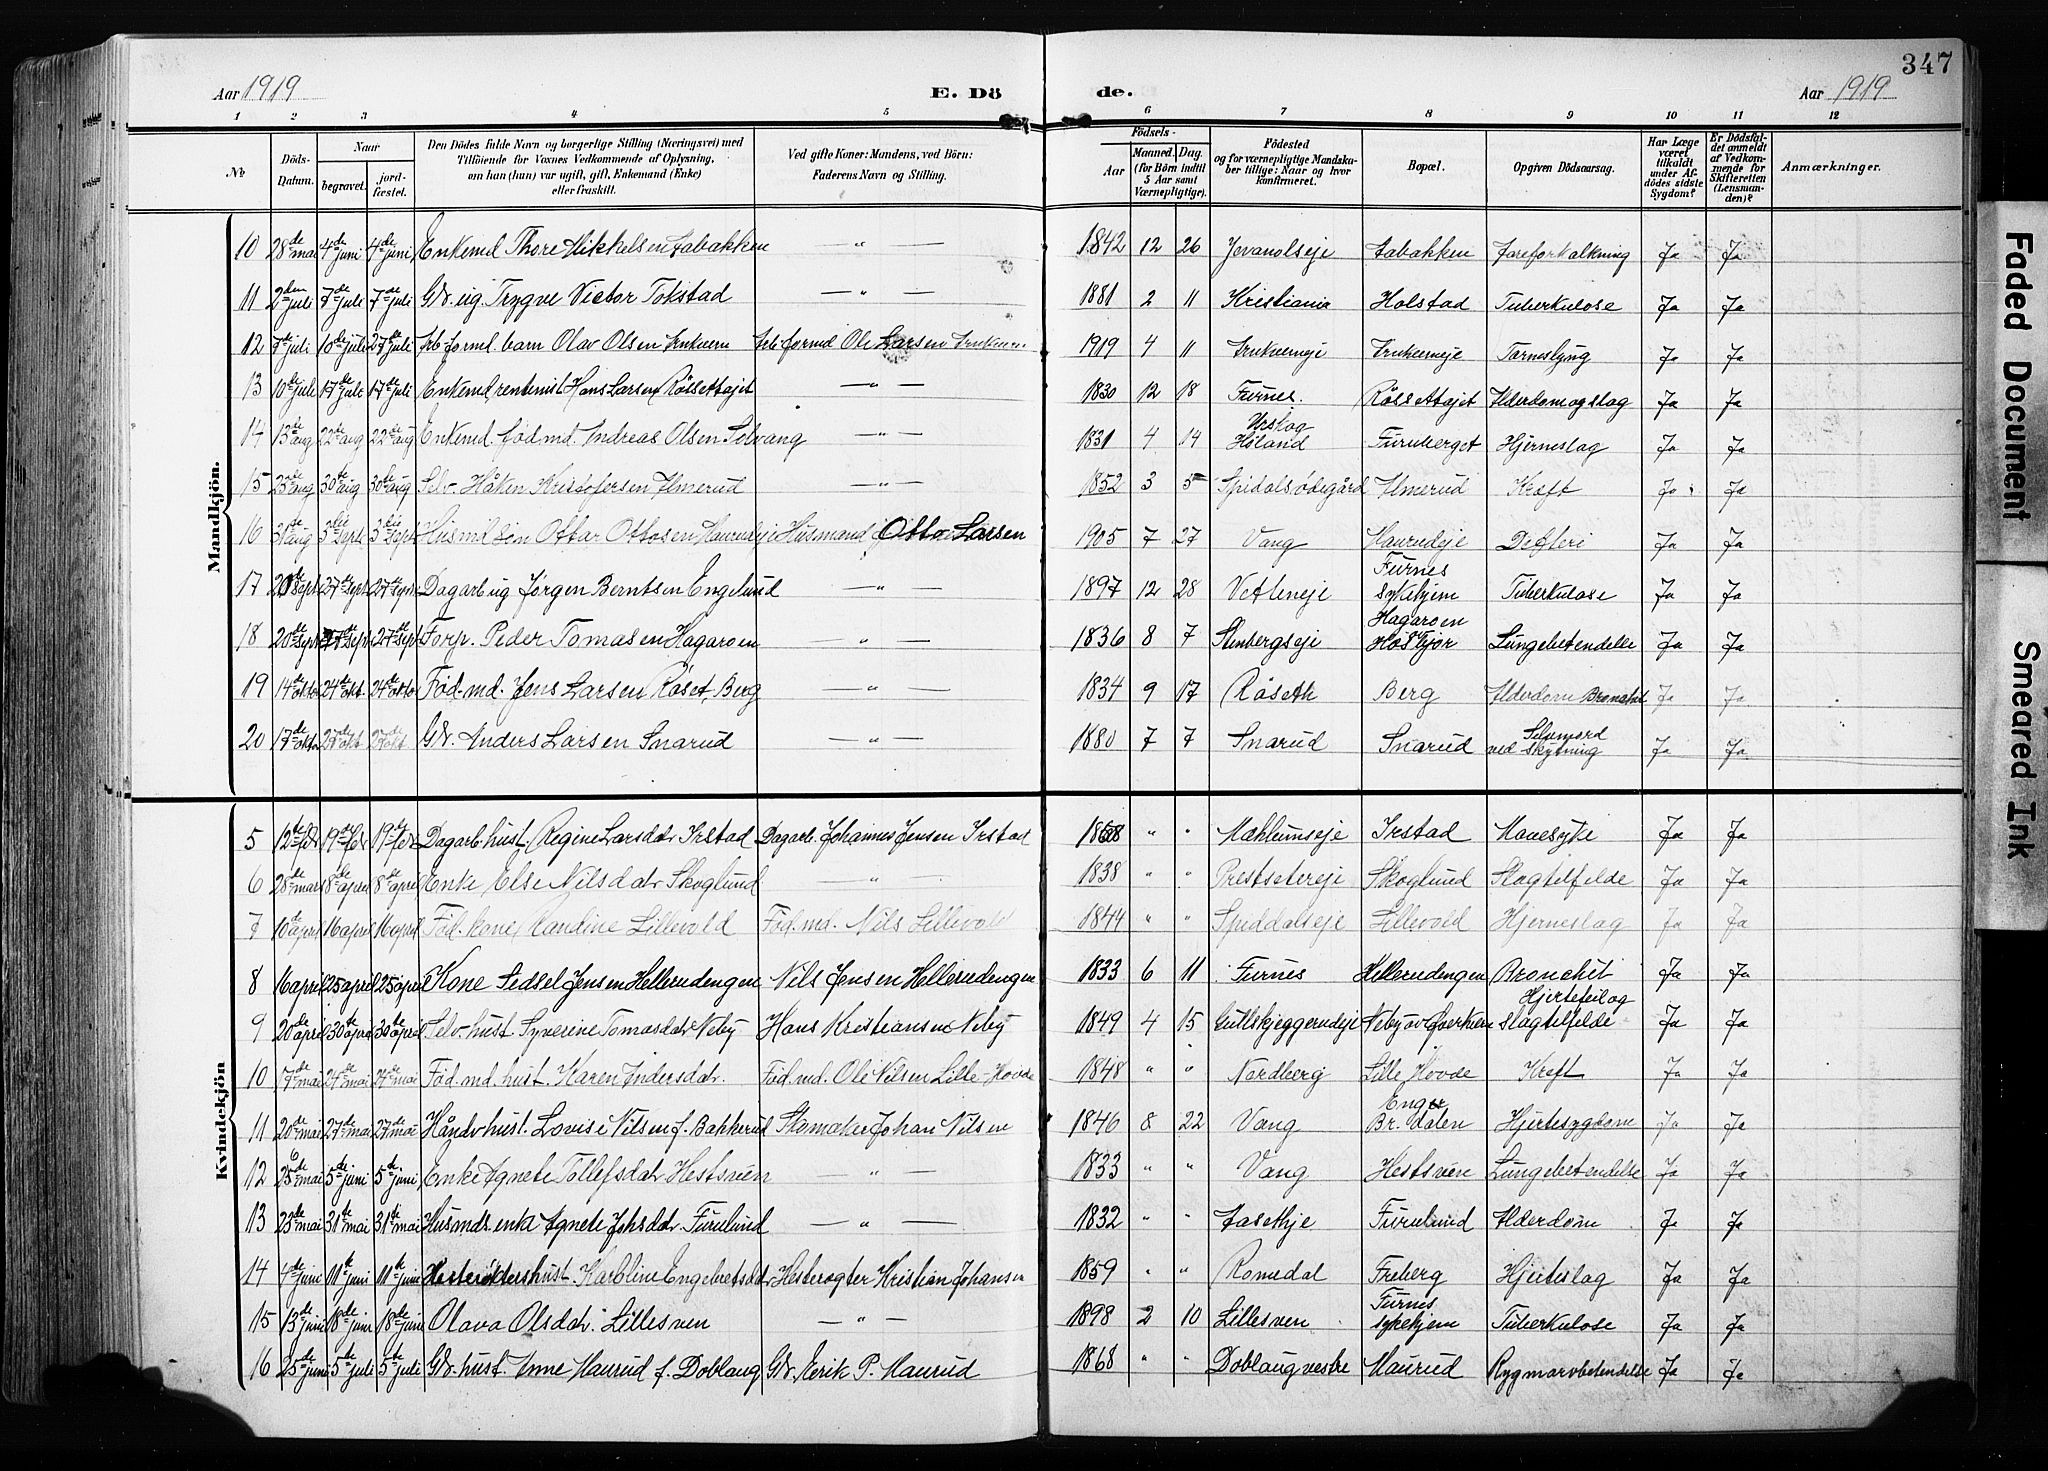 347
Aar 1919 E. Dö de. Aar 1919
1 2 3 4 5 6 7 8 9 10 11 12
No
Döds-Datum.
Naar
begravet.
jordfæstet.
Den Dödes fulde Navn og borgerlige Stilling (Næringsvei) med
Tilföiende for Voxnes Vedkommende af Oplysning,
om han (hun) var ugift, gift, Enkemand (Enke)
eller fraskilt.
Ved gifte Koner: Mandens, ved Börn:
Faderens Navn og Stilling.
Födsels-
Aar
Maaned. Dag.
(for Börn indtil
5 Aar samt
Værnepligtige).
Födested
og for værnepligtige Mandska-
ber tillige: Naar og hvor
konfirmeret.
Bopæl.
Opgiven Dödsaarsag.
Har Læge
været
tilkaldt
under Af-
dödes sidste
Sygdom?
Er Dödsfal-
det anmeldt
af Vedkom-
mende for
Skifteretten
(Lensman-
den)?
Anmærkninger.
Mandkjön.
10 28de mai 4de juni 4de juni Enkemd Thore Mikkelsen Labakken — " — 1842 12 26 Jevanolseje Labakken Åreforkalkning Ja Ja
11 2den juli 7de juli 7de juli Gbr. ug. Trygve Victor Tokstad — " — 1881 2 11 Kristiania Holstad Tuberkulose Ja Ja
12 7de juli 10de juli 27de juli Arb. formd. barn Olav Olsen Arb. formd Ole Larsen 1919 4 11 Tarmslyng Ja Ja
13 10de juli 17de juli 17de juli Enkemd, rentenist Hans Larsen Røssettajet — " — 1830 12 18 Furnes. Røssettajet Alderdom og slag Ja Ja
14 13de aug 22de aug 22de aug Enkemd. fød.md. Andreas Olsen Solvang — " — 1831 4 14 Urskog Høland Furuberget Hjerneslag Ja Ja
15 23de aug 30te aug 30te aug Selv. Håken Kristofersen Almerud — " — 1852 3 5 Spidalsødegård Almerud Kræft Ja Ja
16 31 aug 3die sept 3die sept Husmd. søn Ottar Ottosen Maurudeje Husmand Otto Larsen 1905 7 27 Vang Maurudeje Difteri Ja Ja
17 20de sept 27de sept 27de sept Dagarb. ug. Jørgen Berntsen Engelund — " — 1897 12 28 Vetteneje Furnes sykehjem Tuberkulose Ja Ja
18 20de sept 27de sept 27de sept Forp. Peder Tomasen Hagaroen — " — 1836 8 7 Stenbergseje Hagaroen Lungebetendelse Ja Ja
19 14de okto 24de okt. 24de okto Fød.md. Jens Larsen Røset, Berg — " — 1834 9 17 Røseth Berg Alderdom Bronchit Ja Ja
20 17de okto 27de okt 27de okt Gbr. Anders Larsen Snarud — " — 1880 7 7 Snarud Snarud Selvmord ved skytning Ja Ja
Kvindekjön
5 12te febr 19de febr 19de febr Dagarb. hust. Regine Larsdatr Irstad Dagarb. Johannes Jensen Irstad " " Mæhlumseje Irstad Mavesyke Ja Ja
6 28de mars 8de april 8de april Enke Else Nilsdatr Skoglund — " — 1838 " " Prestsetereje Skoglund Slagtilfelde Ja Ja
7 10 april 16 april 16 april Fød. kone Randine Lillevold Fød.md. Nils Lillevold 1844 " " Spiddalseje Lillevold Hjerneslag Ja Ja
8 16 april 25 april 25 april Kone Sidsel Jensen Hellerudengen Nils Jensen Hellerudengen 1833 6 11 Furnes Hellerudengen Bronchit Ja Ja
9 20de april 30te april 30te april Selv. hust Syverine Tomasdatr Neby Hans Kristiansen Neby 1849 4 15 Gullskjeggerudeje Neby av Hjertefeil og slagtilfelde Ja Ja
10 17de mai 27de mai 27de mai Fød.md. hust. Karen Andersdatr. Fød.md. Ole Nilsen Lille-Hovde 1848 " " Nordberg Lille Hovde Kreft Ja Ja
11 20de mai 27de mai 27de mai Håndv hust. Lovise Nilsen f. Bakkerud Skomaker Johan Nilsen 1846 8 22 Vang Enger Br. dalen Hjertesygdom Ja Ja
12 25de mai 5de juni 5de juni Enke Agnete Tollefsdatr Hestsveen — " — 1833 " " Vang Hestsven Lungebetendelse Ja Ja
13 23de mai 31te mai 31te mai Husmds. enke Agnete Johsdatr Furulund — " — 1832 " " Aasethje Furulund Alderdom Ja Ja
14 4de juni 11te juni 11te juni Hesterøkters hust. Karoline Engebretsdatr Hesterøgter Kristian Johansen 1859 " " Romedal Freberg Hjerteslag Ja Ja
15 13de juni 18de juni 18de juni Olava Olsdatr. Lillesven — " — 1898 2 10 Lillesven Furnes sykehjem Tuberkulose Ja Ja
16 25de juni 5te juli 5te juli Gbr. hust. Anne Maurud f. Doblaug Gbr. Eerik P. Maurud 1868 " " Doblaug vestre Maurud Rygmarvbetendelse Ja Ja
Faded Document
Smeared Ink